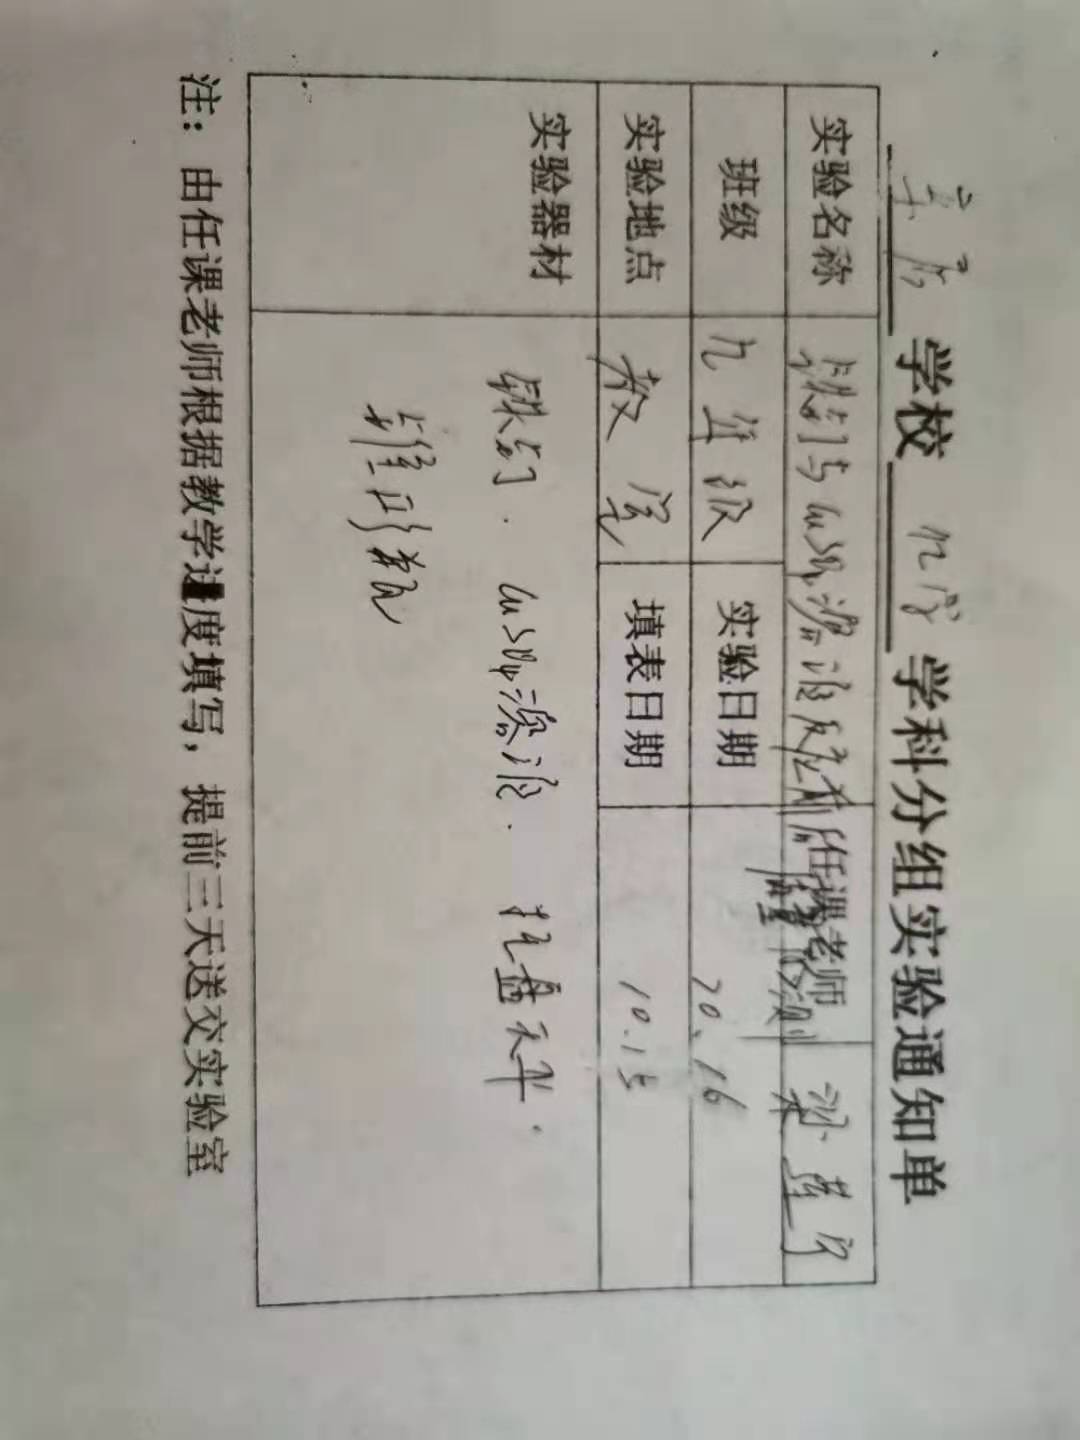 学校 化学 学科分组实验通知单
实验名称 铁钉与CuSO4溶液反应前后质量的测定 任课老师
班级 九年级 实验日期 20.16
实验地点 教室 填表日期 10.15
实验器材 铁钉. CuSO4溶液. 托盘天平.
锥形瓶
注：由任课老师根据教学进度填写，提前三天送交实验室